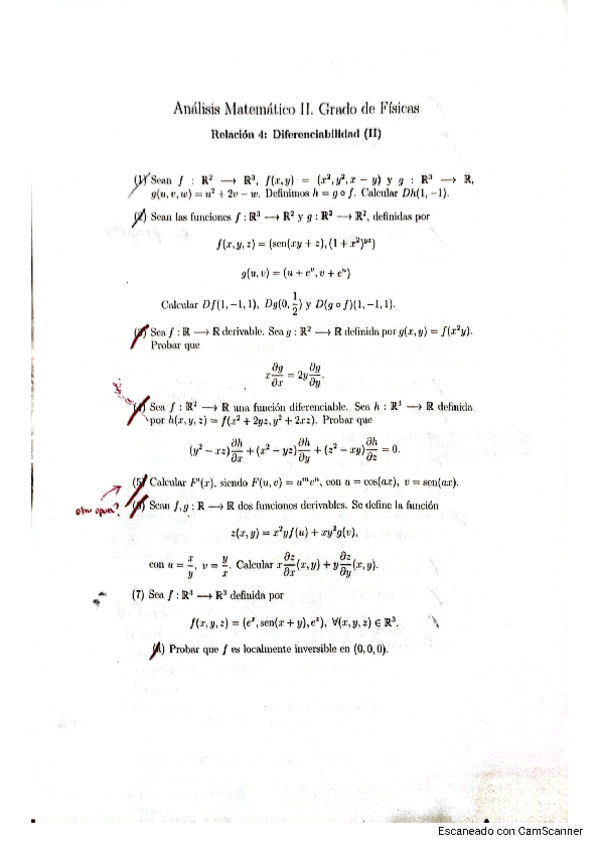 Análisis Matemático II. Grado de Físicas
Relación 4: Diferenciabilidad (II)
(1) Sean f : R² ⟶ R³, f(x, y) = (x², y², x − y) y g : R³ ⟶ R,
g(u, v, w) = u² + 2v − w. Definimos h = g ∘ f. Calcular Dh(1, −1).
(2) Sean las funciones f : R³ ⟶ R² y g : R² ⟶ R², definidas por
f(x, y, z) = (sen(xy + z), (1 + x²)^{yz})
g(u, v) = (u + e^v, v + e^u)
Calcular Df(1, −1, 1), Dg(0, 1/2) y D(g ∘ f)(1, −1, 1).
(3) Sea f : R ⟶ R derivable. Sea g : R² ⟶ R definida por g(x, y) = f(x²y).
Probar que
x ∂g/∂x = 2y ∂g/∂y.
(4) Sea f : R² ⟶ R una función diferenciable. Sea h : R³ ⟶ R definida
por h(x, y, z) = f(x² + 2yz, y² + 2xz). Probar que
(y² − xz) ∂h/∂x + (x² − yz) ∂h/∂y + (z² − xy) ∂h/∂z = 0.
(5) Calcular F'(x), siendo F(u, v) = u^m v^n, con u = cos(ax), v = sen(ax).
(6) Sean f, g : R ⟶ R dos funciones derivables. Se define la función
z(x, y) = x²yf(u) + xy²g(v),
con u = x/y, v = y/x. Calcular x ∂z/∂x (x, y) + y ∂z/∂y (x, y).
(7) Sea f : R³ ⟶ R³ definida por
f(x, y, z) = (e^x, sen(x + y), e^z), ∀(x, y, z) ∈ R³.
(A) Probar que f es localmente inversible en (0, 0, 0).
Escaneado con CamScanner